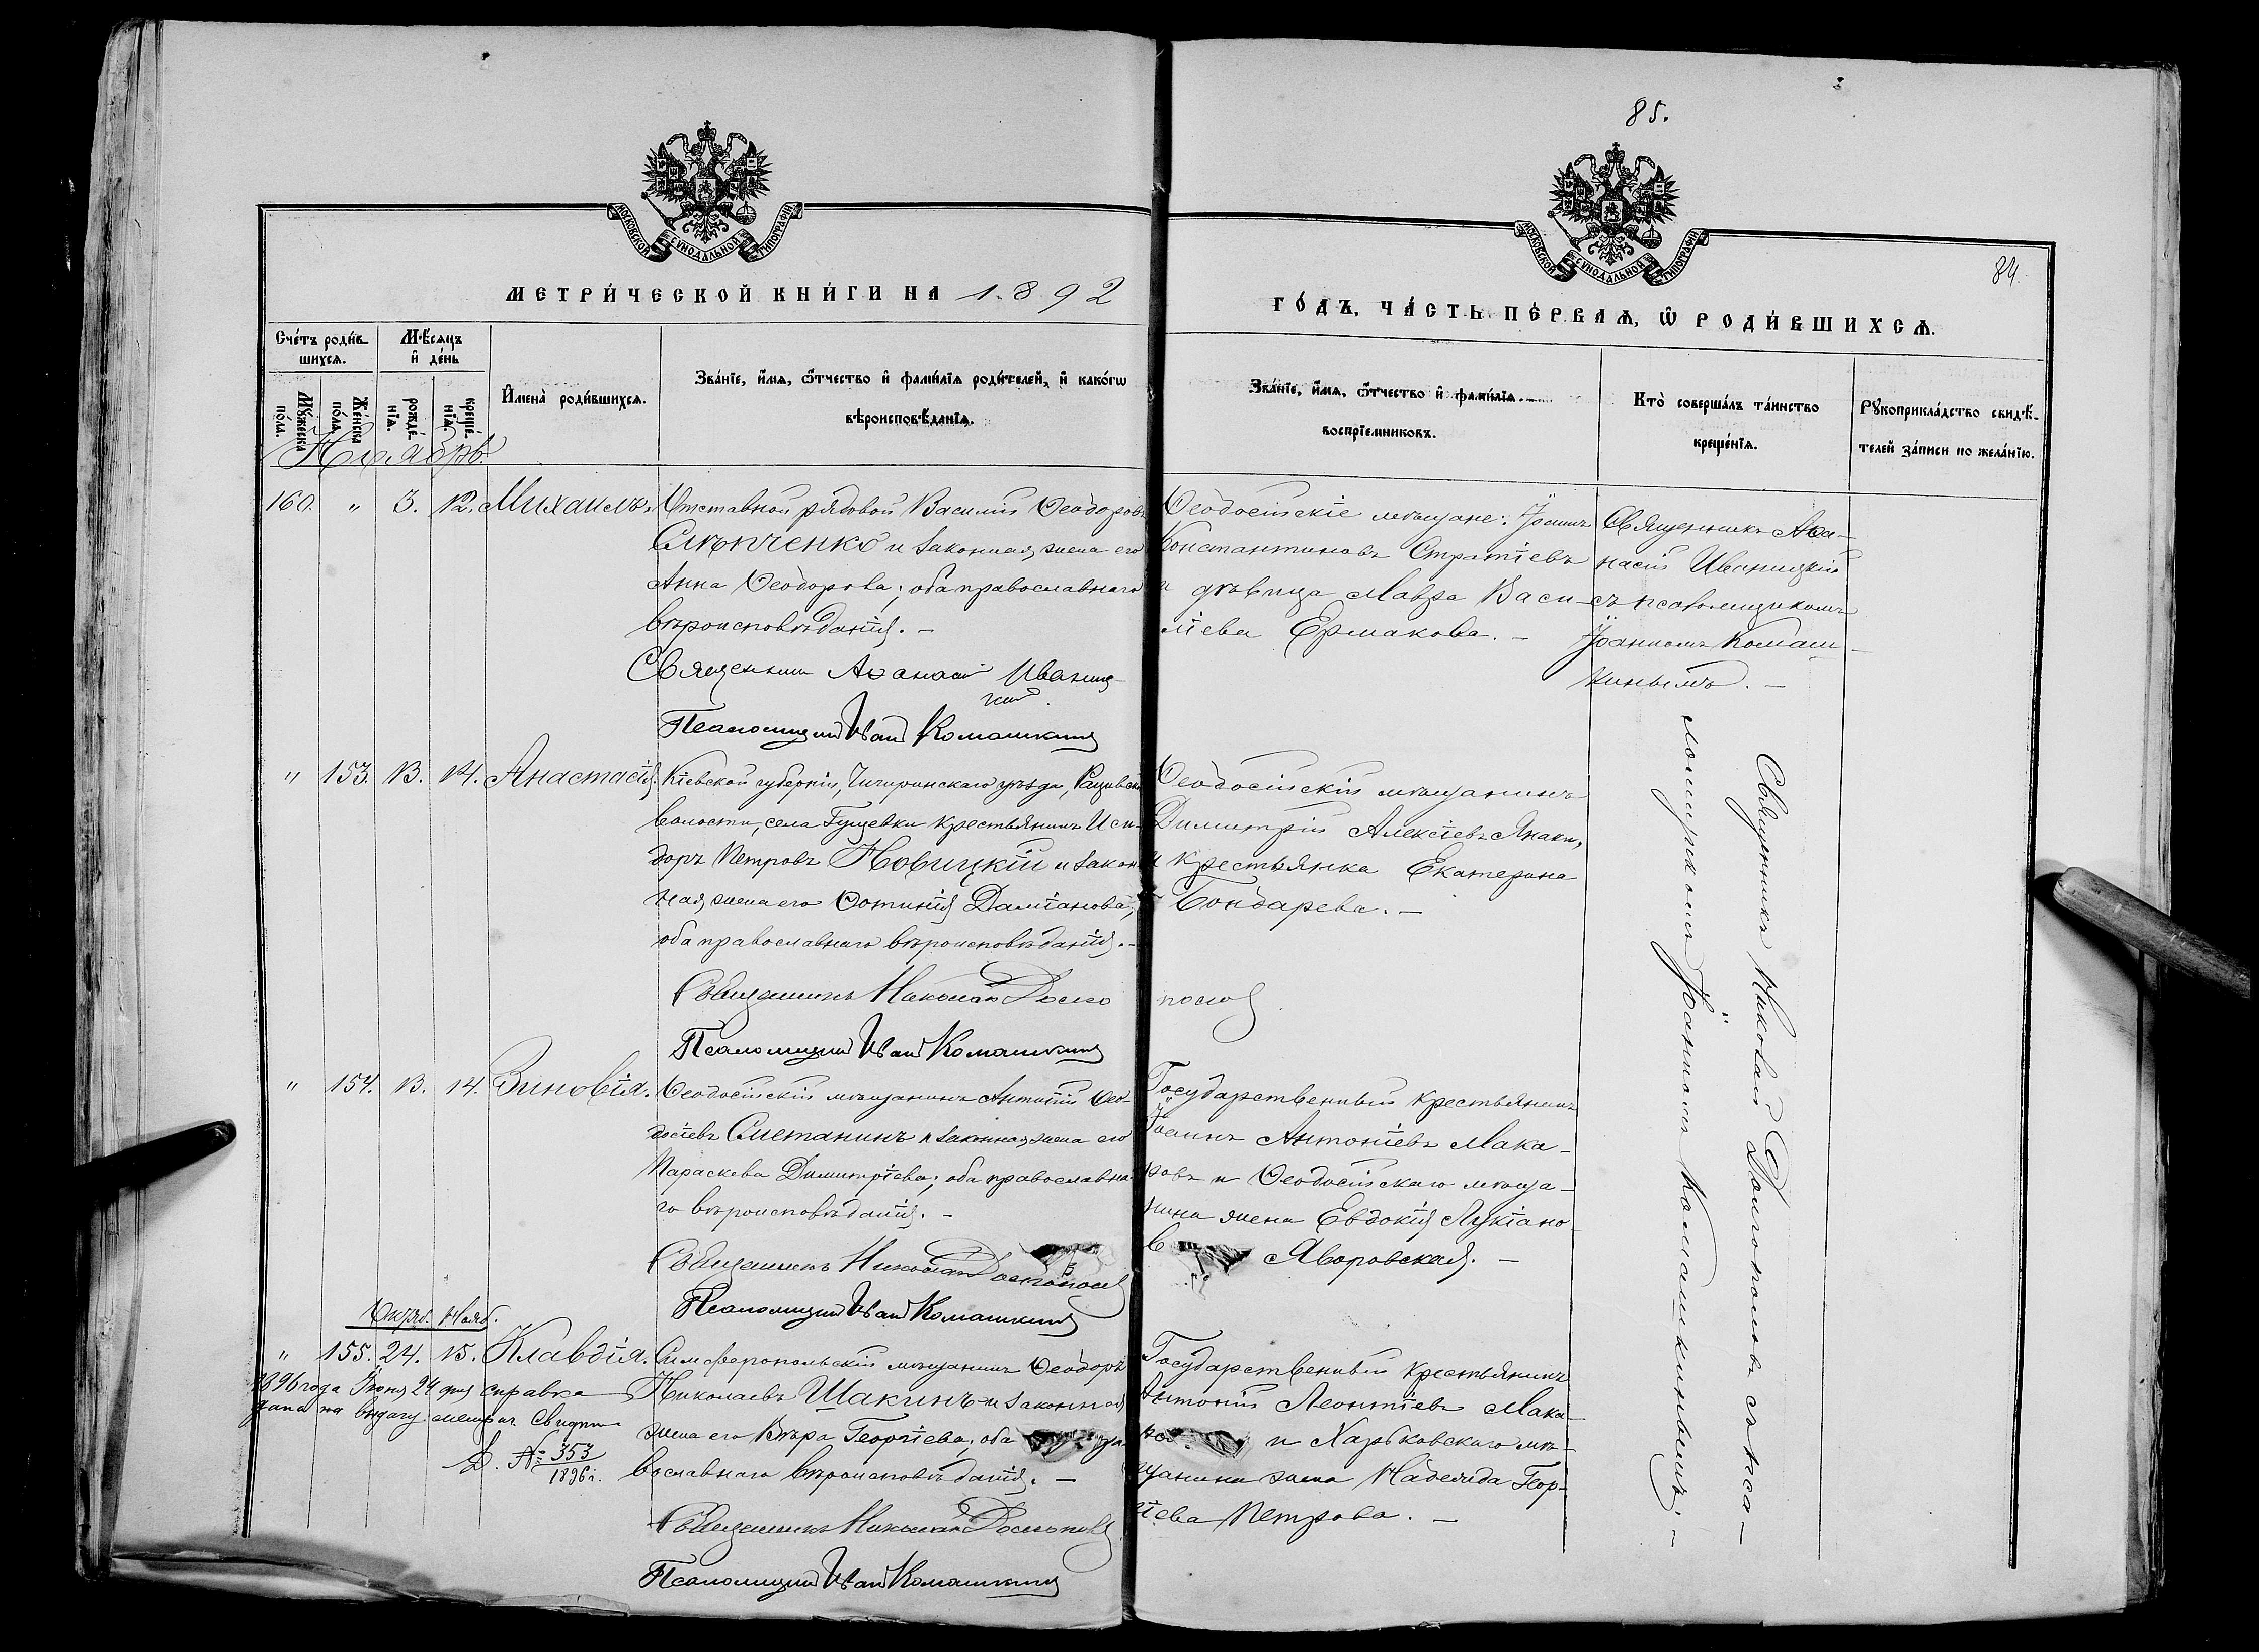 85.
84.
МОСКОВСКОЙ СѴНОДАЛЬНОЙ ТИПОГРАФІИ
МОСКОВСКОЙ СѴНОДАЛЬНОЙ ТИПОГРАФІИ
МЕТРИ́ЧЕСКОЙ КНИ́ГИ НА 1892
ГО́ДЪ, ЧА́СТЬ ПЕ́РВАѦ, Ѡ҆ РОДИ́ВШИХСѦ.
Сче́тъ роди́в-
шихсѧ.
Мѣ́сѧцъ
и҆ де́нь
Мꙋ́жеска
по́ла.
Же́нска
по́ла.
рожде́-
нїѧ.
креще́-
нїѧ.
И҆мена̀ роди́вшихсѧ.
Зва́нїе, и҆́мѧ, ѻ҆́тчество и҆ фами́лїѧ роди́телей, и҆ како́гѡ
вѣроисповѣ́данїѧ.
Зва́нїе, и҆́мѧ, ѻ҆́тчество и҆ фами́лїѧ
воспрїе́мниковъ.
Кто̀ соверша́лъ та́инство
креще́нїѧ.
Рꙋкоприкла́дство свидѣ́-
телей за́писи по жела́нїю.
Ноябрь.
160. " 3. 12. Михаилъ.
Отставной рядовой Василій Ѳеодоровъ
Слѣпченко и законная жена его
Анна Ѳеодорова; оба православнаго
вѣроисповѣданія. –
Священникъ Аѳанасій Иваниц-
кій
Псаломщикъ Иван Комашкинъ
Ѳеодосійскіе мѣщане: Іоаннъ
Константиновъ Стратіевъ
и дѣвица Мавра Васи-
ліева Ермакова. –
Священникъ Аѳа-
насій Иваницкій
съ псаломщикомъ
Іоанномъ Комаш-
кинымъ. –
" 153. 13. 14. Анастасія.
Кіевской губерніи, Чигиринскаго уѣзда,
волости, села Гущевки крестьянинъ Иси-
доръ Петровъ Новицкій и закон-
ная жена его Фотинія Даміанова;
оба православнаго вѣроисповѣданія. –
Священникъ Николай Долго
полов
Псаломщикъ Иван Комашкинъ
Ѳеодосійскій мѣщанинъ
Димитрій Алексіевъ
и крестьянка Екатерина
Бондарева. –
Священникъ Николай Долгополовъ съ пса-
ломщикомъ Іоанномъ Комашкинымъ. –
" 154. 13. 14. Зиновія.
Ѳеодосійскій мѣщанинъ Антоній Ѳео-
досіевъ Сметанинъ и законная жена его
Параскева Димитріева; оба православна-
го вѣроисповѣданія. –
Священникъ Николай Долгополов
Псаломщикъ Иван Комашкинъ
Государственный крестьянинъ
Іоаннъ Антоніевъ Мака-
ровъ и Ѳеодосійскаго мѣща-
нина жена Евдокія Лукіано-
в Яворовская. –
Октяб. Нояб.
" 155. 24. 15. Клавдія.
1896 года Іюня 24 дня справка
дана на выдачу метрич. Свидѣт.
Д. № 353
1896 г.
Симферопольскій мѣщанинъ Ѳеодоръ
Николаевъ Шакинъ и законная
жена его Вѣра Георгіева, оба пра-
вославнаго вѣроисповѣданія. –
Священникъ Николай Долгополов
Псаломщикъ Иван Комашкинъ
Государственный крестьянинъ
Антоній Леонтіевъ Мака-
и Харьковскаго мѣ-
щанина жена Надежда Геор-
гіева Петрова. –